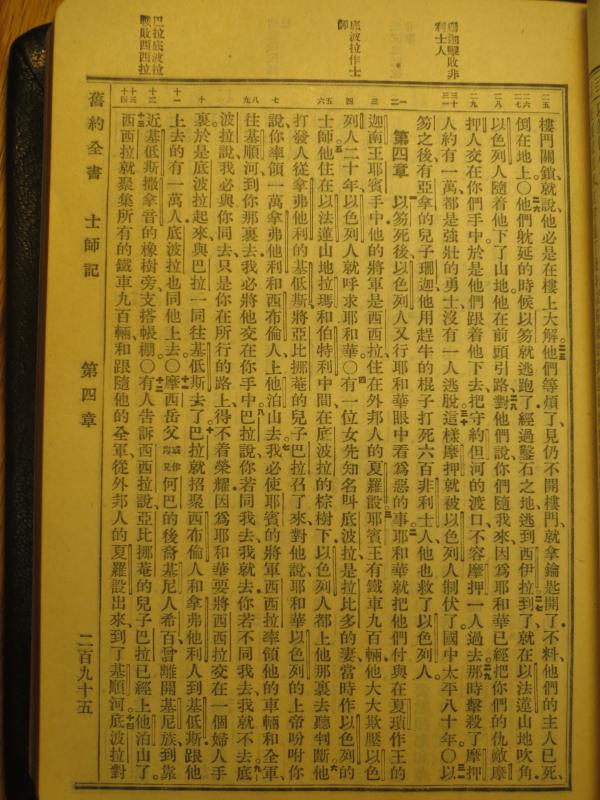 珊迦擊敗非
利士人
底波拉作士
師
巴拉底波拉
戰敗西西拉
樓門關鎖、就說、他必是在樓上大解。二五他們等煩了、見仍不開樓門、就拿鑰匙開了、不料、他們的主人已死、
倒在地上。○二六他們躭延的時候、以笏就逃跑了、經過鑿石之地、逃到西伊拉了、二七就在以法蓮山地吹角、
以色列人隨着他下了山地、他在前頭引路、二八對他們說、你們隨我來、因爲耶和華已經把你們的仇敵摩
押人交在你們手中、於是他們跟着他下去、把守約但河的渡口、不容摩押一人過去。二九那時擊殺了摩押
人約有一萬、都是強壯的勇士、沒有一人逃脫。三十這樣摩押就被以色列人制伏了、國中太平八十年。○三一以
笏之後、有亞拿的兒子珊迦、他用趕牛的棍子打死六百非利士人、他也救了以色列人
第四章 一以笏死後、以色列人又行耶和華眼中看爲惡的事。二耶和華就把他們付與在夏瑣作王的
迦南王耶賓手中、他的將軍是西西拉、住在外邦人的夏羅設。三耶賓王有鐵車九百輛、他大大欺壓以色
列人二十年、以色列人就呼求耶和華。○四有一位女先知名叫底波拉、是拉比多的妻、當時作以色列的
士師。五他住在以法蓮山地拉瑪和伯特利中間、在底波拉的棕樹下、以色列人都上他那裏去聽判斷。六他
打發人從拿弗他利的基低斯、將亞比挪菴的兒子巴拉召了來、對他說、耶和華以色列的上帝吩咐你
說、你率領一萬拿弗他利和西布倫人上他泊山去。七我必使耶賓的將軍西西拉率領他的車輛和全軍、
往基順河到你那裏去、我必將他交在你手中。八巴拉說、你若同我去、我就去、你若不同我去、我就不去。九底
波拉說、我必與你同去、只是你在所行的路上得不着榮耀、因爲耶和華要將西西拉交在一個婦人手
裏、於是底波拉起來、與巴拉一同往基低斯去了。十巴拉就招聚西布倫人和拿弗他利人到基低斯、跟他
上去的有一萬人、底波拉也同他上去。○十一摩西岳父或作內兄何巴的後裔基尼人希百、曾離開基尼族、到靠
近基低斯撒拿音的橡樹旁支搭帳棚。○十二有人告訴西西拉說、亞比挪菴的兒子巴拉、已經上他泊山了。
十三西西拉就聚集所有的鐵車九百輛、和跟隨他的全軍、從外邦人的夏羅設出來、到了基順河。十四底波拉對
舊約全書 士師記 第四章 二百九十五